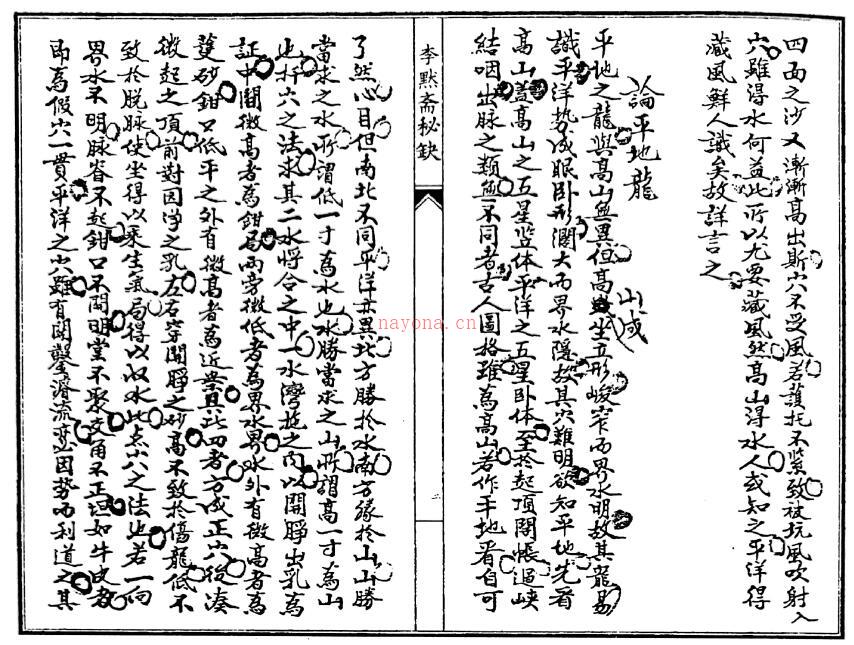 四面之沙又漸漸高出斯穴不受風若護托不緊致被坑風吹射入
穴雖得水何益此所以尤要藏風然高山得水人或知之平洋得
藏風鮮人識矣故詳言之
論平地龍
平地之龍與高山無異但高坐立形峻窄而界水明故其龍易
山成
識平洋勢成眠卧形濶大而界水隱故其穴難明欲知平地先看
高山蓋高山之五星竖体平洋之五星卧体至於起頂開帳過峡
結咽出脉之類無不同者古人圖格雖為高山若作平地看自可
李默斋秘訣
二
了然心目但南北不同平洋亦異北方勝於水南方勝於山山勝
當求之水所謂低一寸為水也水勝當求之山所謂高一寸為山
也扦穴之法求其二水將合之中一水灣抱之內以開睜出乳為
証中間微高者為鉗局兩旁微低者為界水界水外有微高者為
蟬砂鉗口低平之外有微高者為近案具此四者方成正穴後湊
微起之頂前對因浮之乳左右穿開睜之砂高不致於傷龍低不
致於脱脉使坐得以乘生氣局得以收水此点穴之法也若一向
界水不明脉脊不起鉗口不開明堂不聚交角不正坦如牛皮者
即為假穴一貫平洋之穴雖有開鑿濬流亦必因势而利道之其
nayona.cn